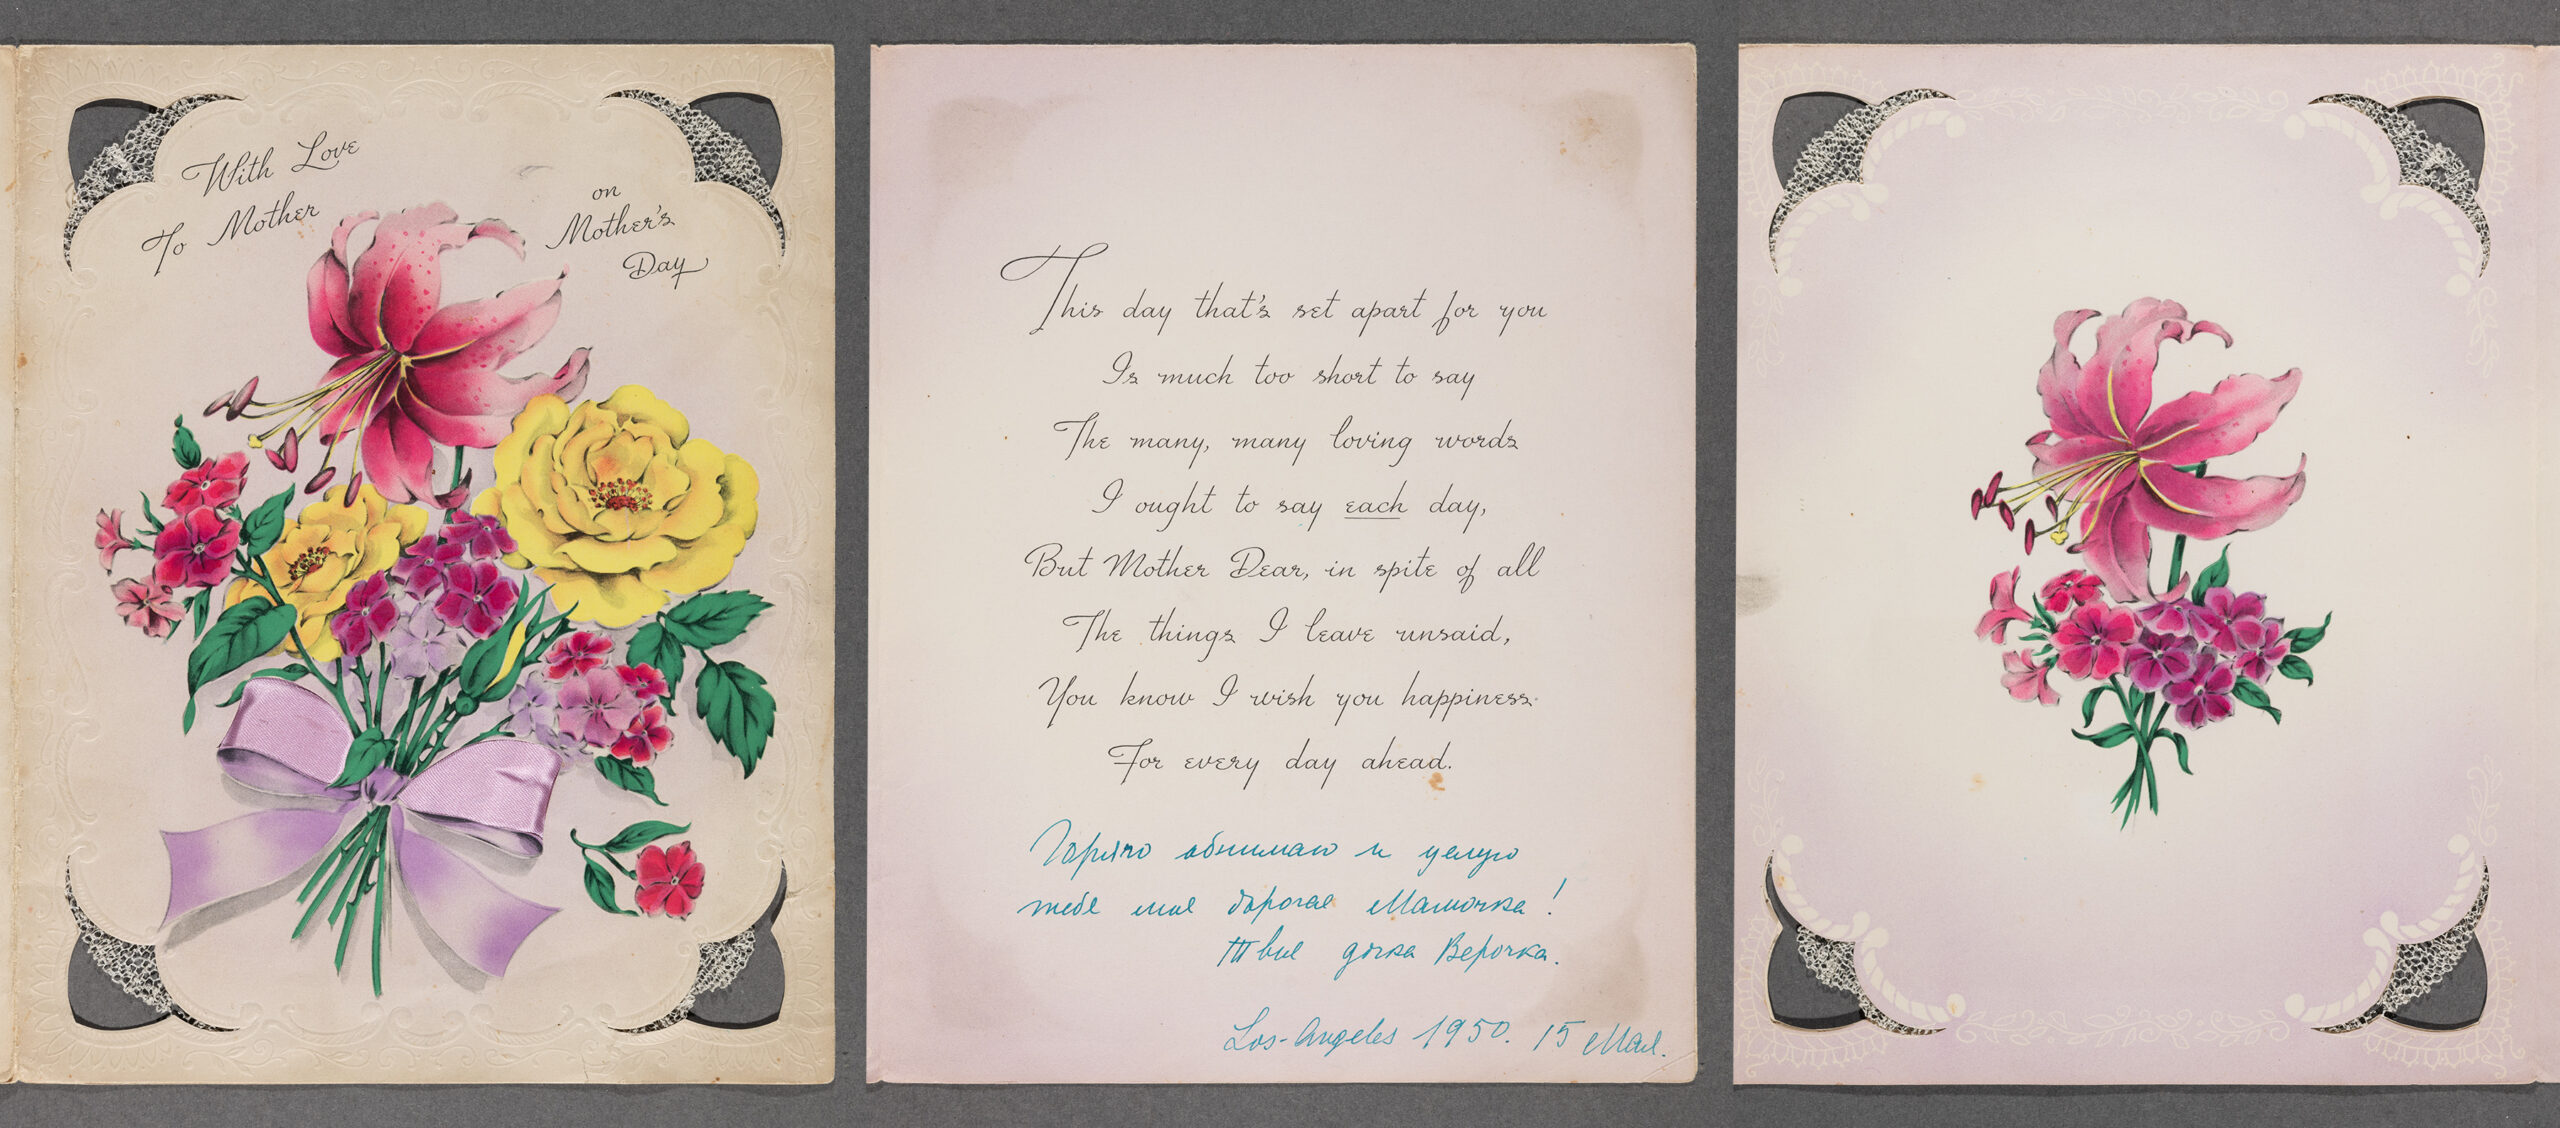 With Love
To Mother
on
Mother's
Day
This day that's set apart for you
Is much too short to say
The many, many loving words
I ought to say each day,
But Mother Dear, in spite of all
The things I leave unsaid,
You know I wish you happiness
For every day ahead.
Горячо обнимаю и целую
тебя моя дорогая Мамочка!
Твоя дочка Верочка.
Los-Angeles 1950. 15 Мая.